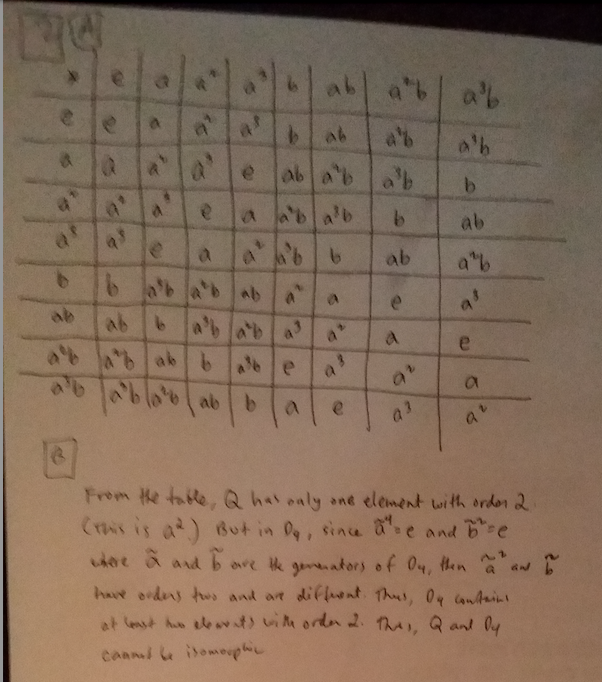 2 A
* | e | a | a² | a³ | b | ab | a²b | a³b
e | e | a | a² | a³ | b | ab | a²b | a³b
a | a | a² | a³ | e | ab | a²b | a³b | b
a² | a² | a³ | e | a | a²b | a³b | b | ab
a³ | a³ | e | a | a² | a³b | b | ab | a²b
b | b | a³b | a²b | ab | a² | a | e | a³
ab | ab | b | a³b | a²b | a³ | a² | a | e
a²b | a²b | ab | b | a³b | e | a³ | a² | a
a³b | a³b | a²b | ab | b | a | e | a³ | a²
B
From the table, Q has only one element with order 2.
(This is a².) But in D₄, since ã⁴=e and b̃²=e
where ã and b̃ are the generators of D₄, then ã² and b̃
have orders two and are different. Thus, D₄ contains
at least two elements with order 2. Thus, Q and D₄
cannot be isomorphic